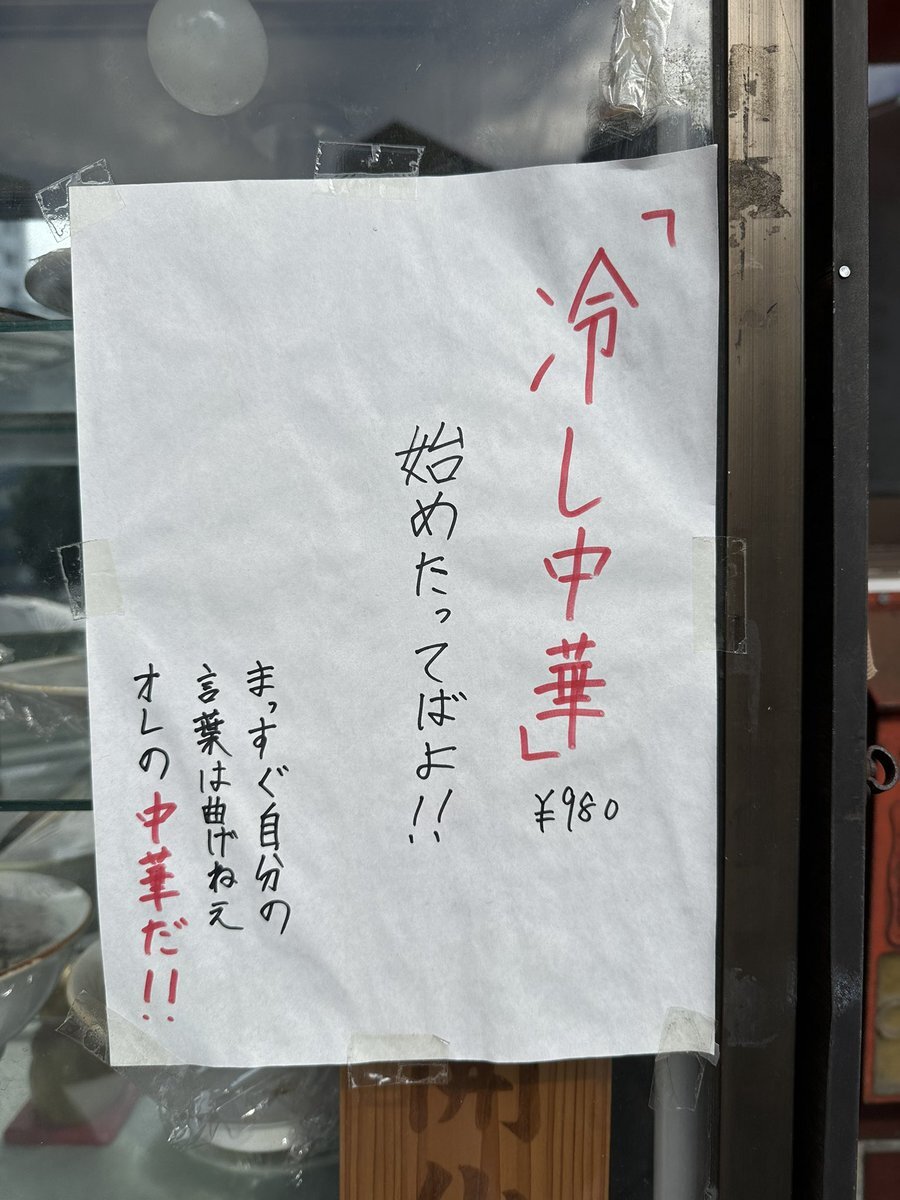 「冷し中華」
¥980
始めたってばよ!!
まっすぐ自分の
言葉は曲げねえ
オレの中華だ!!